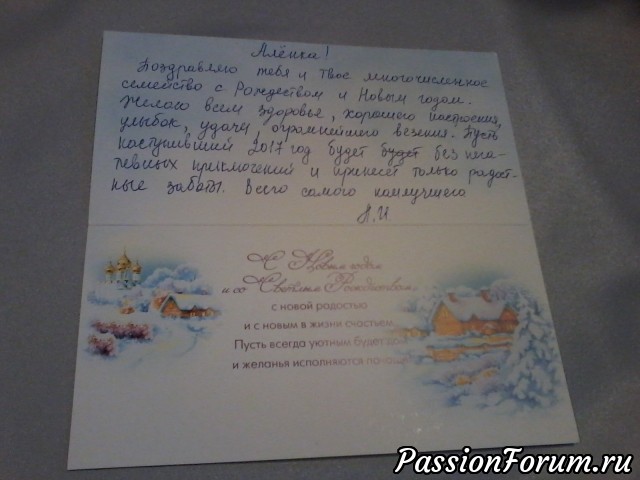 Алёнка!
Поздравляю тебя и твое многочисленное
семейство с Рождеством и Новым годом.
Желаю всем здоровья, хорошего настроения,
улыбок, удачи, огромнейшего везения. Пусть
наступивший 2017 год будет будет без пла-
чевных приключений и принесет только радост-
ные заботы. Всего самого наилучшего
С Новым годом
и со Светлым Рождеством,
с новой радостью
и с новым в жизни счастьем.
Пусть всегда уютным будет дом
и желанья исполняются почаще!
PassionForum.ru